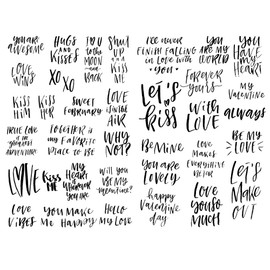 you are
awesome
Hugs
and
Kisses
to
the
moon
and
back
Shut
up
and
kiss
me
I'll never
finish falling
in love with
you
you
are my
world
You
have
my
heart
love
wins
XO
XO
let's
kiss
forever
yours
my
Valentine
Kiss
him
Kiss
her
sweet
february
Love
is in the
air
with
love
always
True love
is the
greatest
adventure
Together is
my favorite
place to be
why
not?
Be my
love
Love
Kiss
me
My
heart
is
wherever
you are
Will you
be my
valentine?
Be mine
Love
makes
everything
better
Let's
make
out
You are
lovely
Love
vibes
You make
me happy
Hello
my love
happy
valentine
day
Love
you so
much